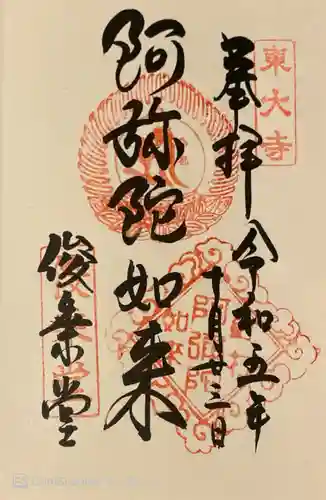 東大寺
奉拝
令和五年
十月廿三日
阿弥陀如来
俊乗堂